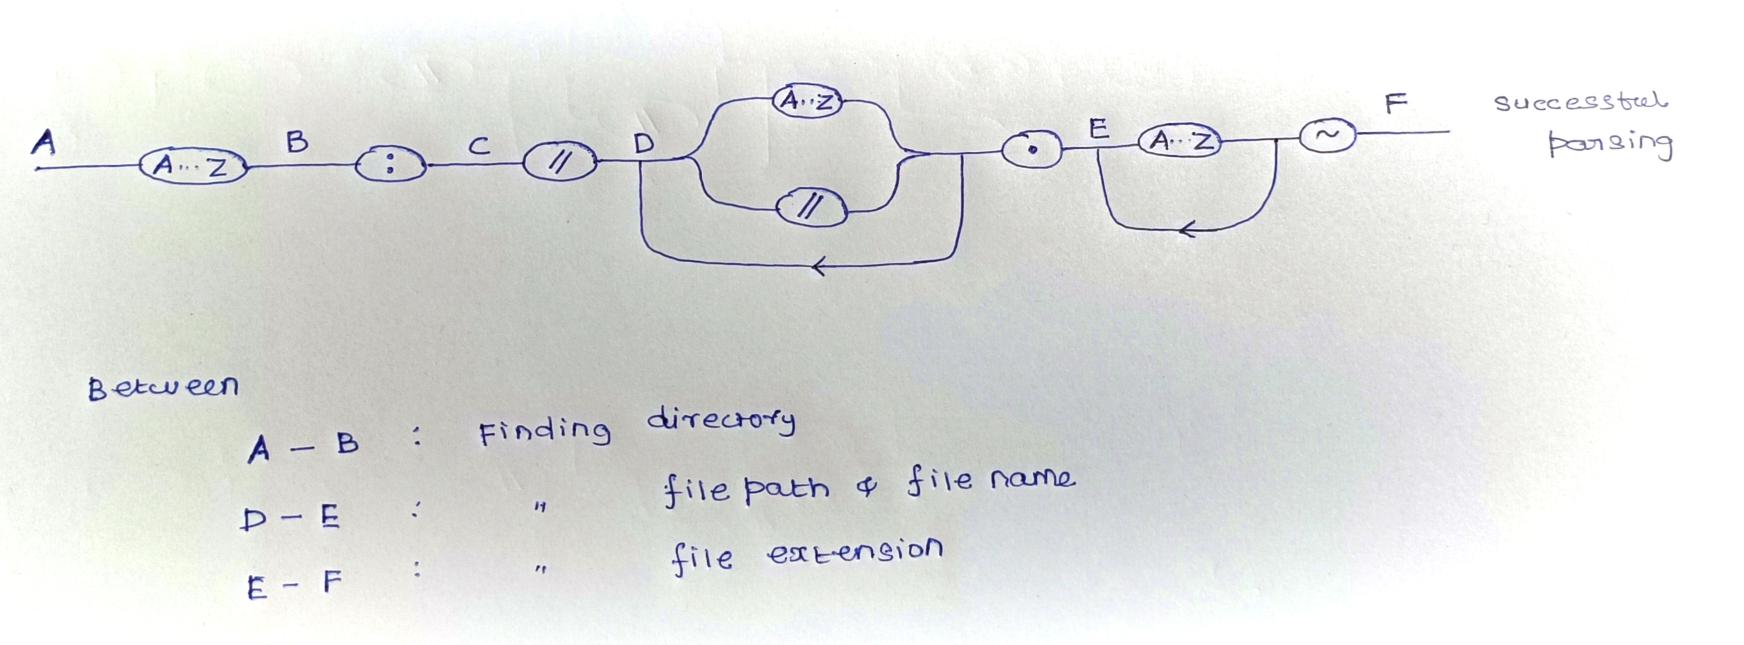 A A...Z B : C // D A..Z // . E A..Z ~ F successful
parsing
Between
A - B : Finding directory
D - E : " file path & file name
E - F : " file extension